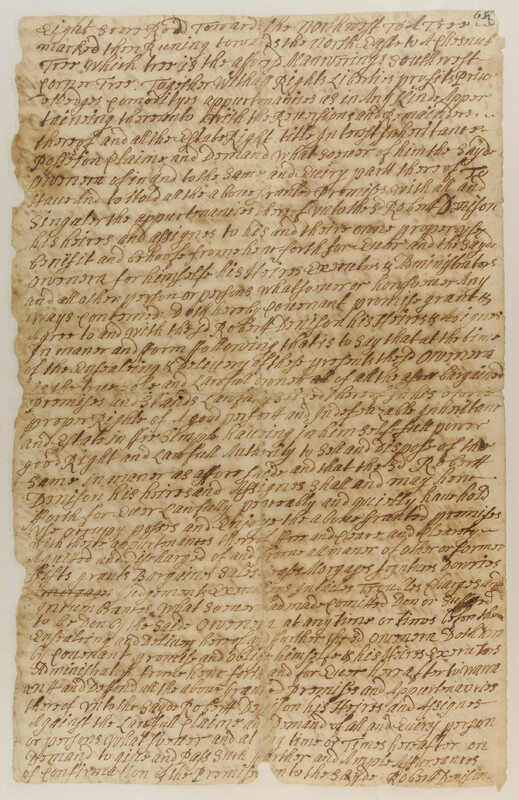 Eight score Rod Towards the Northwest To A Tree
marked then Runing towards the North Easte to A Chesnut
Tree which tree is the aforsd Mannerings Southwest
Corner Tree Together with all Rights Liberties profits Priv
eledges Comodityes appurtenances as in Any Kinde Apper
taining thereunto with the Reversions and Remainders
thereof and all the Estate Right title Intrest Inheritance
possession Claime and Demand whatsoever of him the Sayde
Owenera of in and to the same and Every part thereof To
Have And to Hold all the above granted Premises with all and
Singuler the appurtenances thereof unto the sd Robert Denison
his heires and assignes to his and their owne proper use
benifit and behoofe from hence forth for Ever and the Sayde
Owenera for himselfe his Heires Executors & Administrators
and all other person or persons whatsoever or howsoever Any
ways Conserned Doth hereby Covenant promise grant &
Agree to and with the sd Robert Denison his Heires & Assignes
In maner and form following that is to Say that at the time
of the Ensealing & Delivery of these presents the sd Owenera
is the true Sole and Lawfull owner of all the afore bargained
premises and Stands Lawfully seized thereof in his owne
proper Right of A good perfect and Indefeizable Inheritance
and Estate in fee Simple Haveing in himselfe full power
good Right and Lawfull Authority to Sell and Dispose of the
Same in maner as afforesaide and that the Sd Robertt
Denison his heires and Assignes shall and may hence
forth for Ever Lawfully peaceably and quietly have hold
use occupy posess and Enjoye the above granted premises
with their appurtenances Free and Cleare and Clearly
acquited and Discharged of and from all maner of other or former
gifts grants Bargaines Sales Leases Morgages Joyntures Dowries
Judgements Executions Troubles Charges and
Incumbrances whatsoever had made Comitted Don or Suffered
to be Don by the Saide Owenera at any time or times before the
Ensealing and Delivery hereof and farther the sd Owenera Doth hereby
Covenant promise and obliege himselfe & his Heires Executors
Administrators from hence forth and for Ever hereafter to warra
ntt and Defend all the above granted premises and Appurtenances
thereof unto the Sayde Robert Denison his Heires and Assignes
Against the Lawfull Claime and Demand of all and Every person
or persons whatsoever and at any time or Times hereafter on
Demand to give and Pass Such further and Ample Assurances
of Confirmation of the Premises unto the Sayde Robert Denison